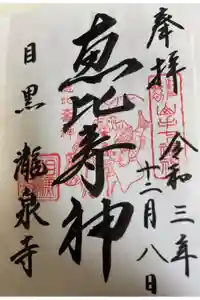 奉拝
令和三年
十二月八日
恵比寿神
目黒 瀧泉寺